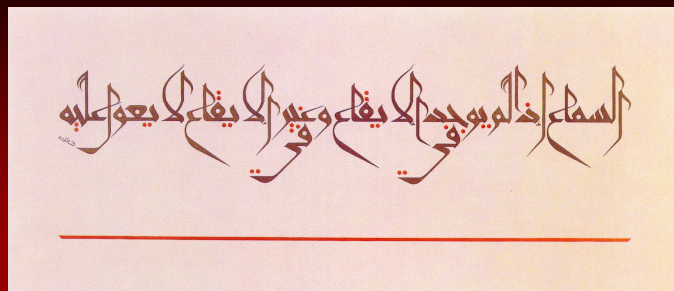 السماع إذا لم يوجد في الايقاع وفي غير الايقاع لا يعول عليه